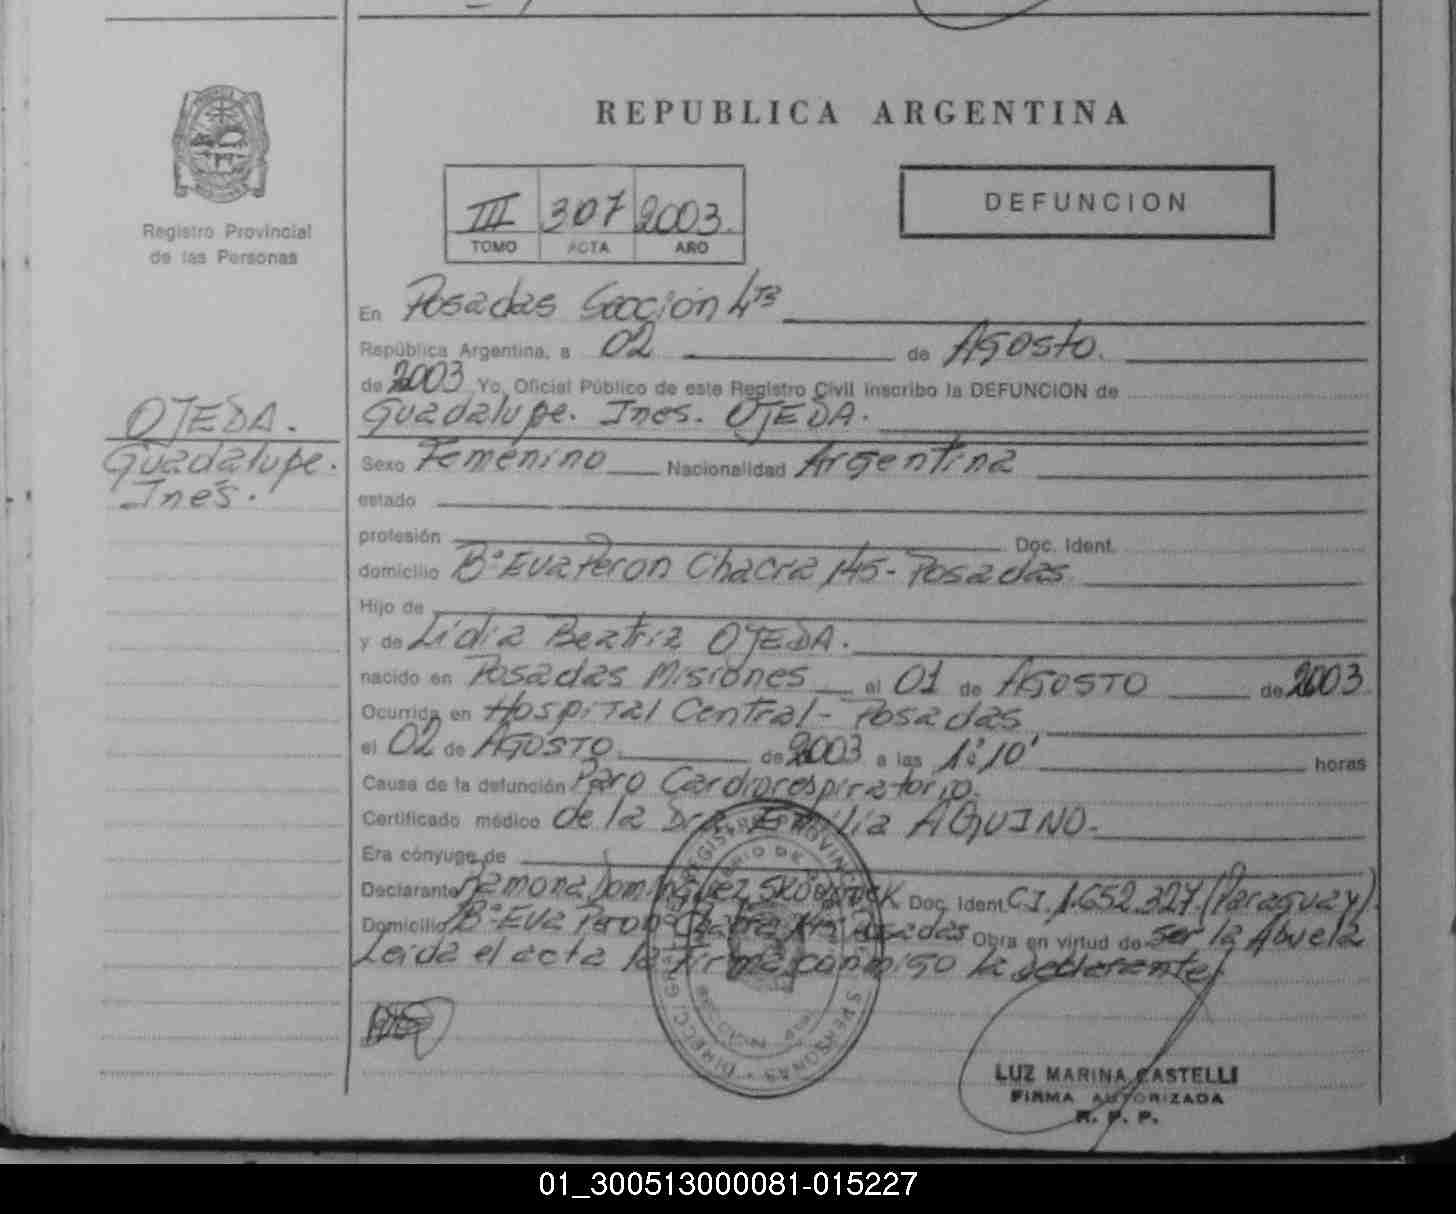 REPUBLICA ARGENTINA
Registro Provincial
de las Personas
III 307 2003.
TOMO ACTA AÑO
DEFUNCION
En Posadas Sección 4ta
República Argentina, a 02 de Agosto.
de 2003 Yo, Oficial Público de este Registro Civil inscribo la DEFUNCION de
OJEDA.
Guadalupe.
Inés.
Guadalupe. Ines. OJEDA.
Sexo Femenino Nacionalidad Argentina
estado
profesión Doc. Ident.
domicilio Bº Eva Peron Chacra 145 - Posadas
Hijo de
y de Lidia Beatriz OJEDA.
nacido en Posadas Misiones el 01 de AGOSTO de 2003
Ocurrida en Hospital Central - Posadas
el 02 de AGOSTO. de 2003 a las 1:10' horas
Causa de la defunción Paro Cardiorespiratorio.
Certificado médico de la Dra Emilia AQUINO.
Era cónyuge de
Declarante Ramona Dominguez Doc. Ident. C.I. 1.652.327. (Paraguay)
Domicilio Bº Eva Peron Chacra 145 Posadas Obra en virtud de ser la Abuela
Leida el acta la firma conmigo la declarante
LUZ MARINA CASTELLI
FIRMA AUTORIZADA
R. P. P.
01_300513000081-015227